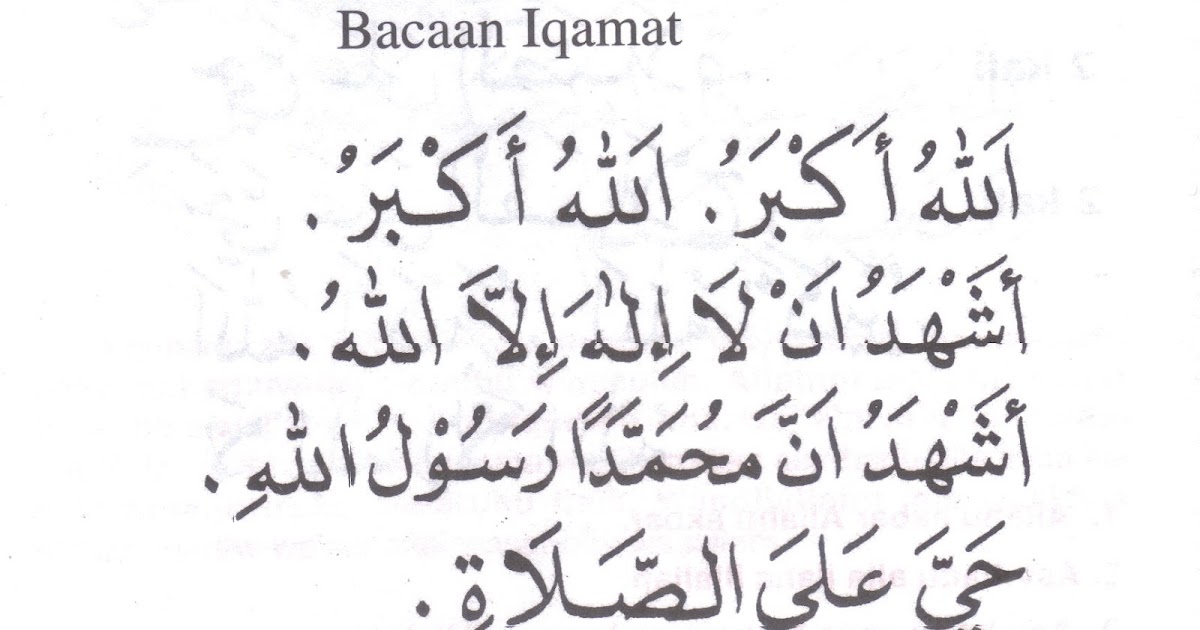 Bacaan Iqamat
اَللّٰهُ أَكْبَرُ. اَللّٰهُ أَكْبَرُ.
أَشْهَدُ اَنْ لَا إِلٰهَ إِلاَّ اللّٰهُ.
أَشْهَدُ اَنَّ مُحَمَّدًا رَسُوْلُ اللّٰهِ.
حَيَّ عَلَىَ الصَّلَاةِ.